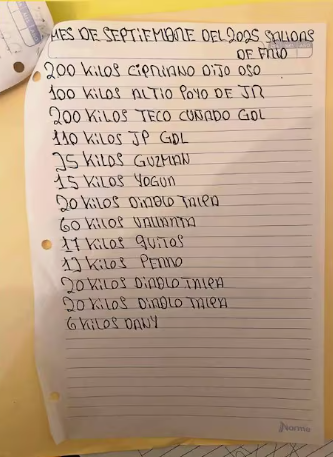 MES DE SEPTIEMBRE DEL 2025 SALIDAS
DE FRIO
200 KILOS CIPRIANO OJO OSO
100 KILOS ALTIO POYO DE JR
200 KILOS TECO CUÑADO GDL
110 KILOS JP GDL
25 KILOS GUZMAN
15 KILOS YOGUR
20 KILOS DIABLO TALPA
60 KILOS VALLARTA
17 KILOS QUITOS
12 KILOS PERRO
20 KILOS DIABLO TALPA
20 KILOS DIABLO TALPA
6 KILOS DANY
Norma